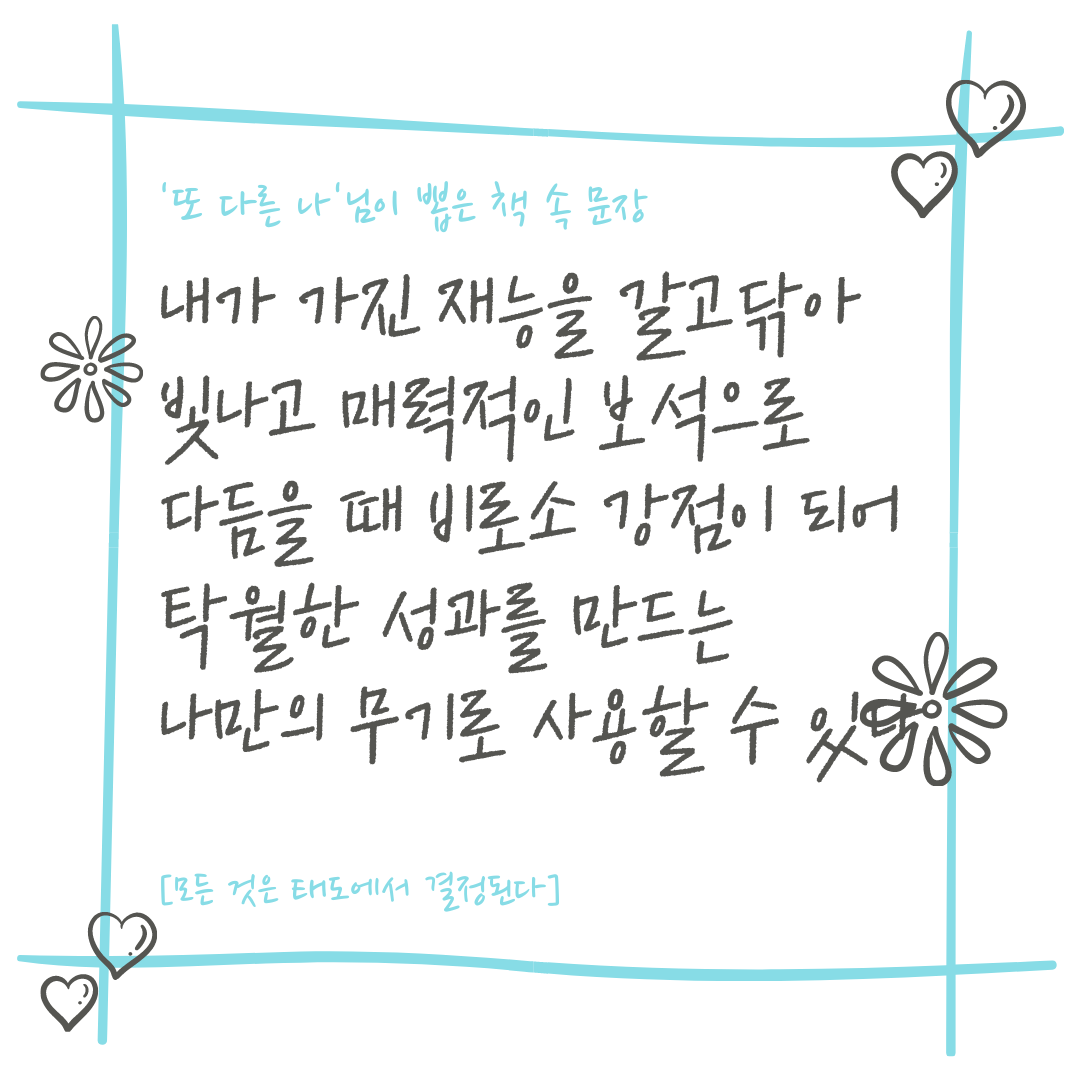 '또 다른 나'님이 뽑은 책 속 문장
내가 가진 재능을 갈고닦아
빛나고 매력적인 보석으로
다듬을 때 비로소 강점이 되어
탁월한 성과를 만드는
나만의 무기로 사용할 수 있다
[모든 것은 태도에서 결정된다]